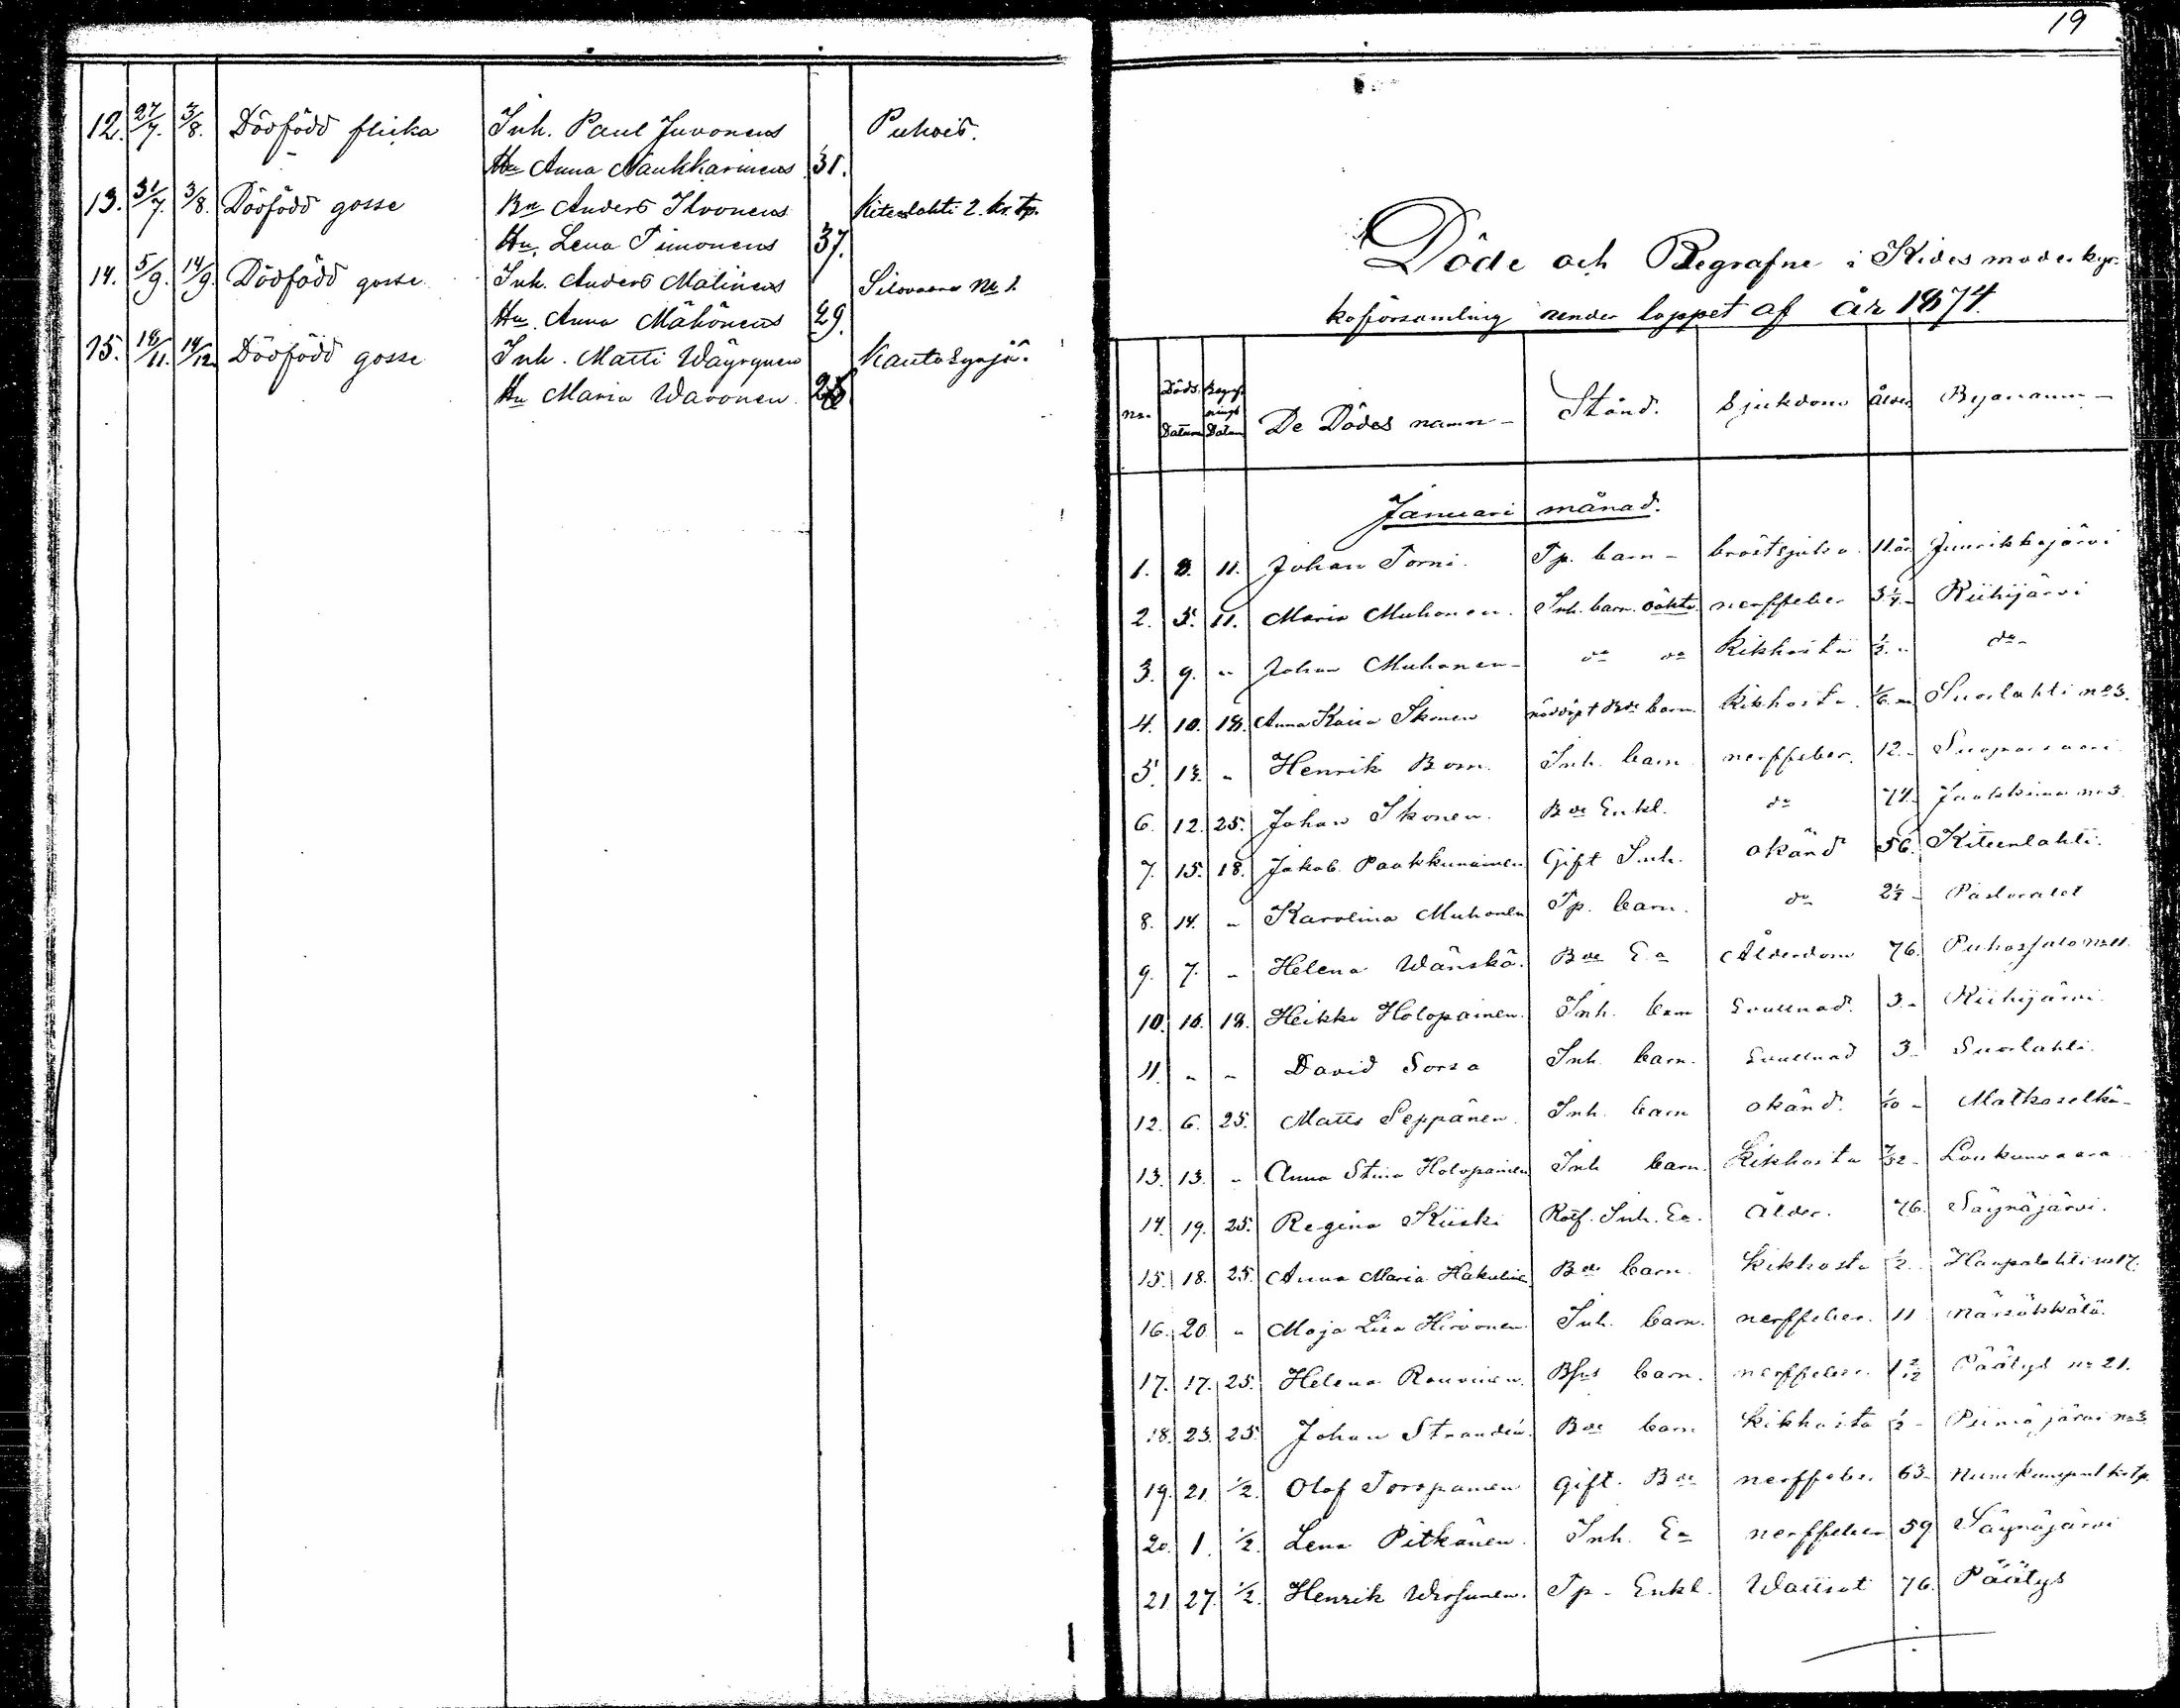 12. 27/7. 3/8. Dödfödd flicka Inh. Paul Juvonens Puhois.
Hu Anna Naukkarinens 31.
13. 31/7. 3/8. Dödfödd gosse Bn Anders Ilvonens Kiteelahti 2. kr. tp.
Hu. Lena Timonens 37.
14. 5/9. 14/9. Dödfödd gosse Inh. Anders Malinens Silovaara No 1.
Hu. Anna Mähönens 29.
15. 18/11. 14/12. Dödfödd gosse Inh. Matti Wäyrynen Kautosynjä.
Hu Maria Wavonen
19
Döde och Begrafne i Kides moderkyr-
koförsamling under loppet af år 1874.
no. Döds Datum Begrafnings Datum De Dödes namn Stånd. Sjukdom Ålder Byanamn
Januari månad.
1. 8. 11. Johan Torni. Tp. barn bröstsjuka 11 år Juurikkajärvi
2. 5. 11. Maria Muhonen. Inh. barn oäkta nerffeber Riihijärvi
3. 9. " Johan Muhonen do do Kikhosta 1/2. " do
4. 10. 18. Anna Kaisa Ikonen barn Kikhosta 1/6 Suorlahti no 3.
5. 13. " Henrik Bom. Inh. barn nerffeber. 12. Suoparsaari
6. 12. 25. Johan Ikonen. Bde Enkl. do 74. Jaakkima no 3.
7. 15. 18. Jakob Paakkunainen Gift Inh. okänd 56. Kiteenlahti.
8. 14. " Karolina Muhonen Tp. barn. do 2 1/2 Pastoratet
9. 7. " Helena Wänskä. Bde Ea Ålderdom 76. Puhossalo no 11.
10. 16. 18. Heikki Holopainen. Inh. barn Svullnad. 3. Riihijärvi.
11. " " David Sorsa Inh. barn. Svullnad 3 Suorlahti.
12. 6. 25. Matts Seppänen. Inh. barn okänd. 1/10 Matkaselkä
13. 13. " Anna Stina Holopainen Inh barn. Kikhosta Loukunvaara
14. 19. 25. Regina Kiiski Rotf. Inh. Ea. Ålder. 76. Säynäjärvi.
15. 18. 25. Anna Maria Hakulinen Bde barn. Kikhosta 1/2 Haapalahti no 17.
16. 20. " Maja Lisa Hirvonen Inh. barn. nerffeber. 11 Närsäkkälä.
17. 17. 25. Helena Rouvinen. Bfus barn. nerffeber. 1 2/12 Päätys no 21.
18. 23. 25. Johan Strandén. Bde barn Kikhosta 1/2 Piimäjärvi no 3.
19. 21. 1/2. Olof Toropainen Gift. Bde nerffeber 63.
20. 1. 1/2. Lena Pitkänen. Inh. Ea nerffeber 59 Säynäjärvi
21. 27. 1/2. Henrik Tp. Enkl. Wattsot 76. Päätys